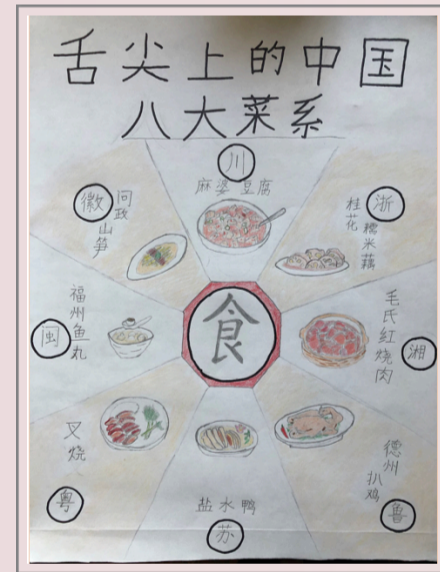 舌尖上的中国
八大菜系
川
麻婆豆腐
浙
桂花
糯米藕
湘
毛氏红烧肉
鲁
德州
扒鸡
苏
盐水鸭
粤
叉烧
闽
福州鱼丸
徽
问政
山笋
食